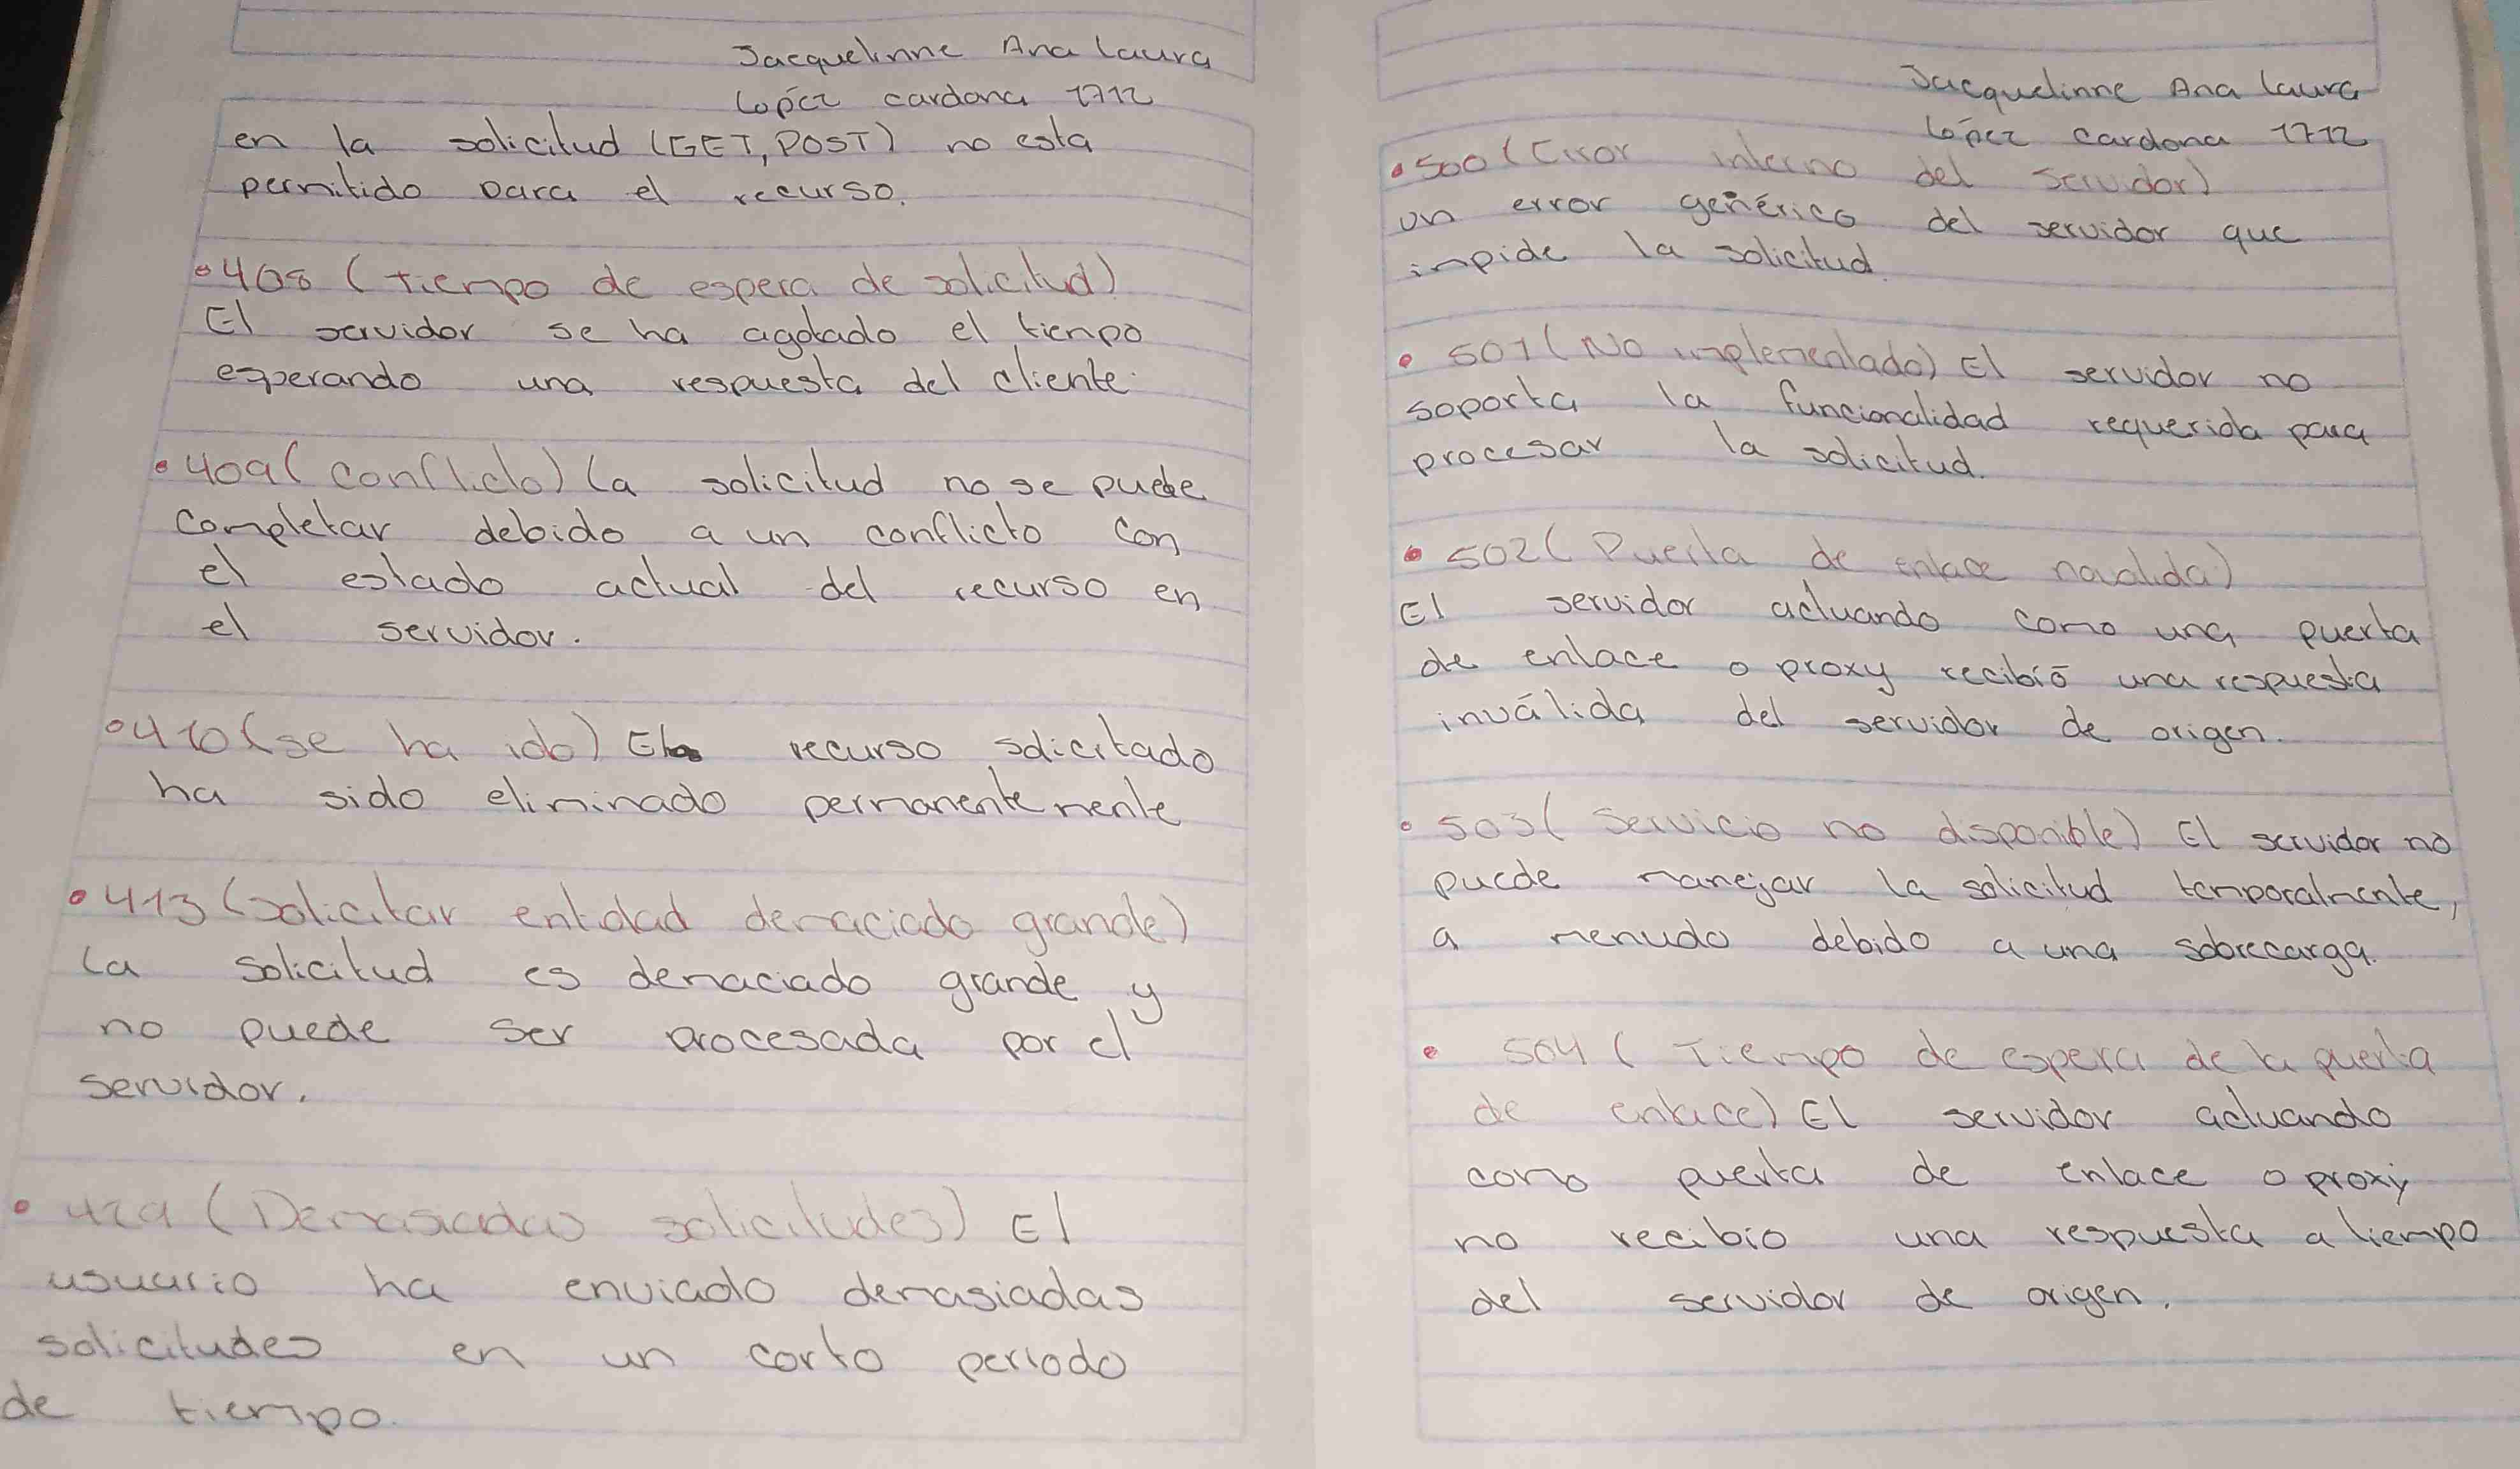 Jacquelinne Ana Laura
López cardona 1712
en la solicitud (GET, POST) no esta
permitido para el recurso.
• 408 (Tiempo de espera de solicitud)
El servidor se ha agotado el tiempo
esperando una respuesta del cliente.
• 409 (Conflicto) La solicitud no se puede
completar debido a un conflicto con
el estado actual del recurso en
el servidor.
• 410 (se ha ido) El recurso solicitado
ha sido eliminado permanentemente
• 413 (Solicitar entidad demaciado grande)
La solicitud es demaciado grande y
no puede ser procesada por el
servidor.
• 429 (Demasiadas solicitudes) El
usuario ha enviado demasiadas
solicitudes en un corto periodo
de tiempo.
Jacquelinne Ana Laura
López cardona 1712
• 500 (Error interno del servidor)
un error genérico del servidor que
impide la solicitud.
• 501 (No implementado) El servidor no
soporta la funcionalidad requerida para
procesar la solicitud.
• 502 (Puerta de enlace no valida)
El servidor actuando como una puerta
de enlace o proxy recibió una respuesta
inválida del servidor de origen.
• 503 (Servicio no disponible) El servidor no
puede manejar la solicitud temporalmente,
a menudo debido a una sobrecarga.
• 504 (Tiempo de espera de la puerta
de enlace) El servidor actuando
como puerta de enlace o proxy
no recibio una respuesta a tiempo
del servidor de origen.